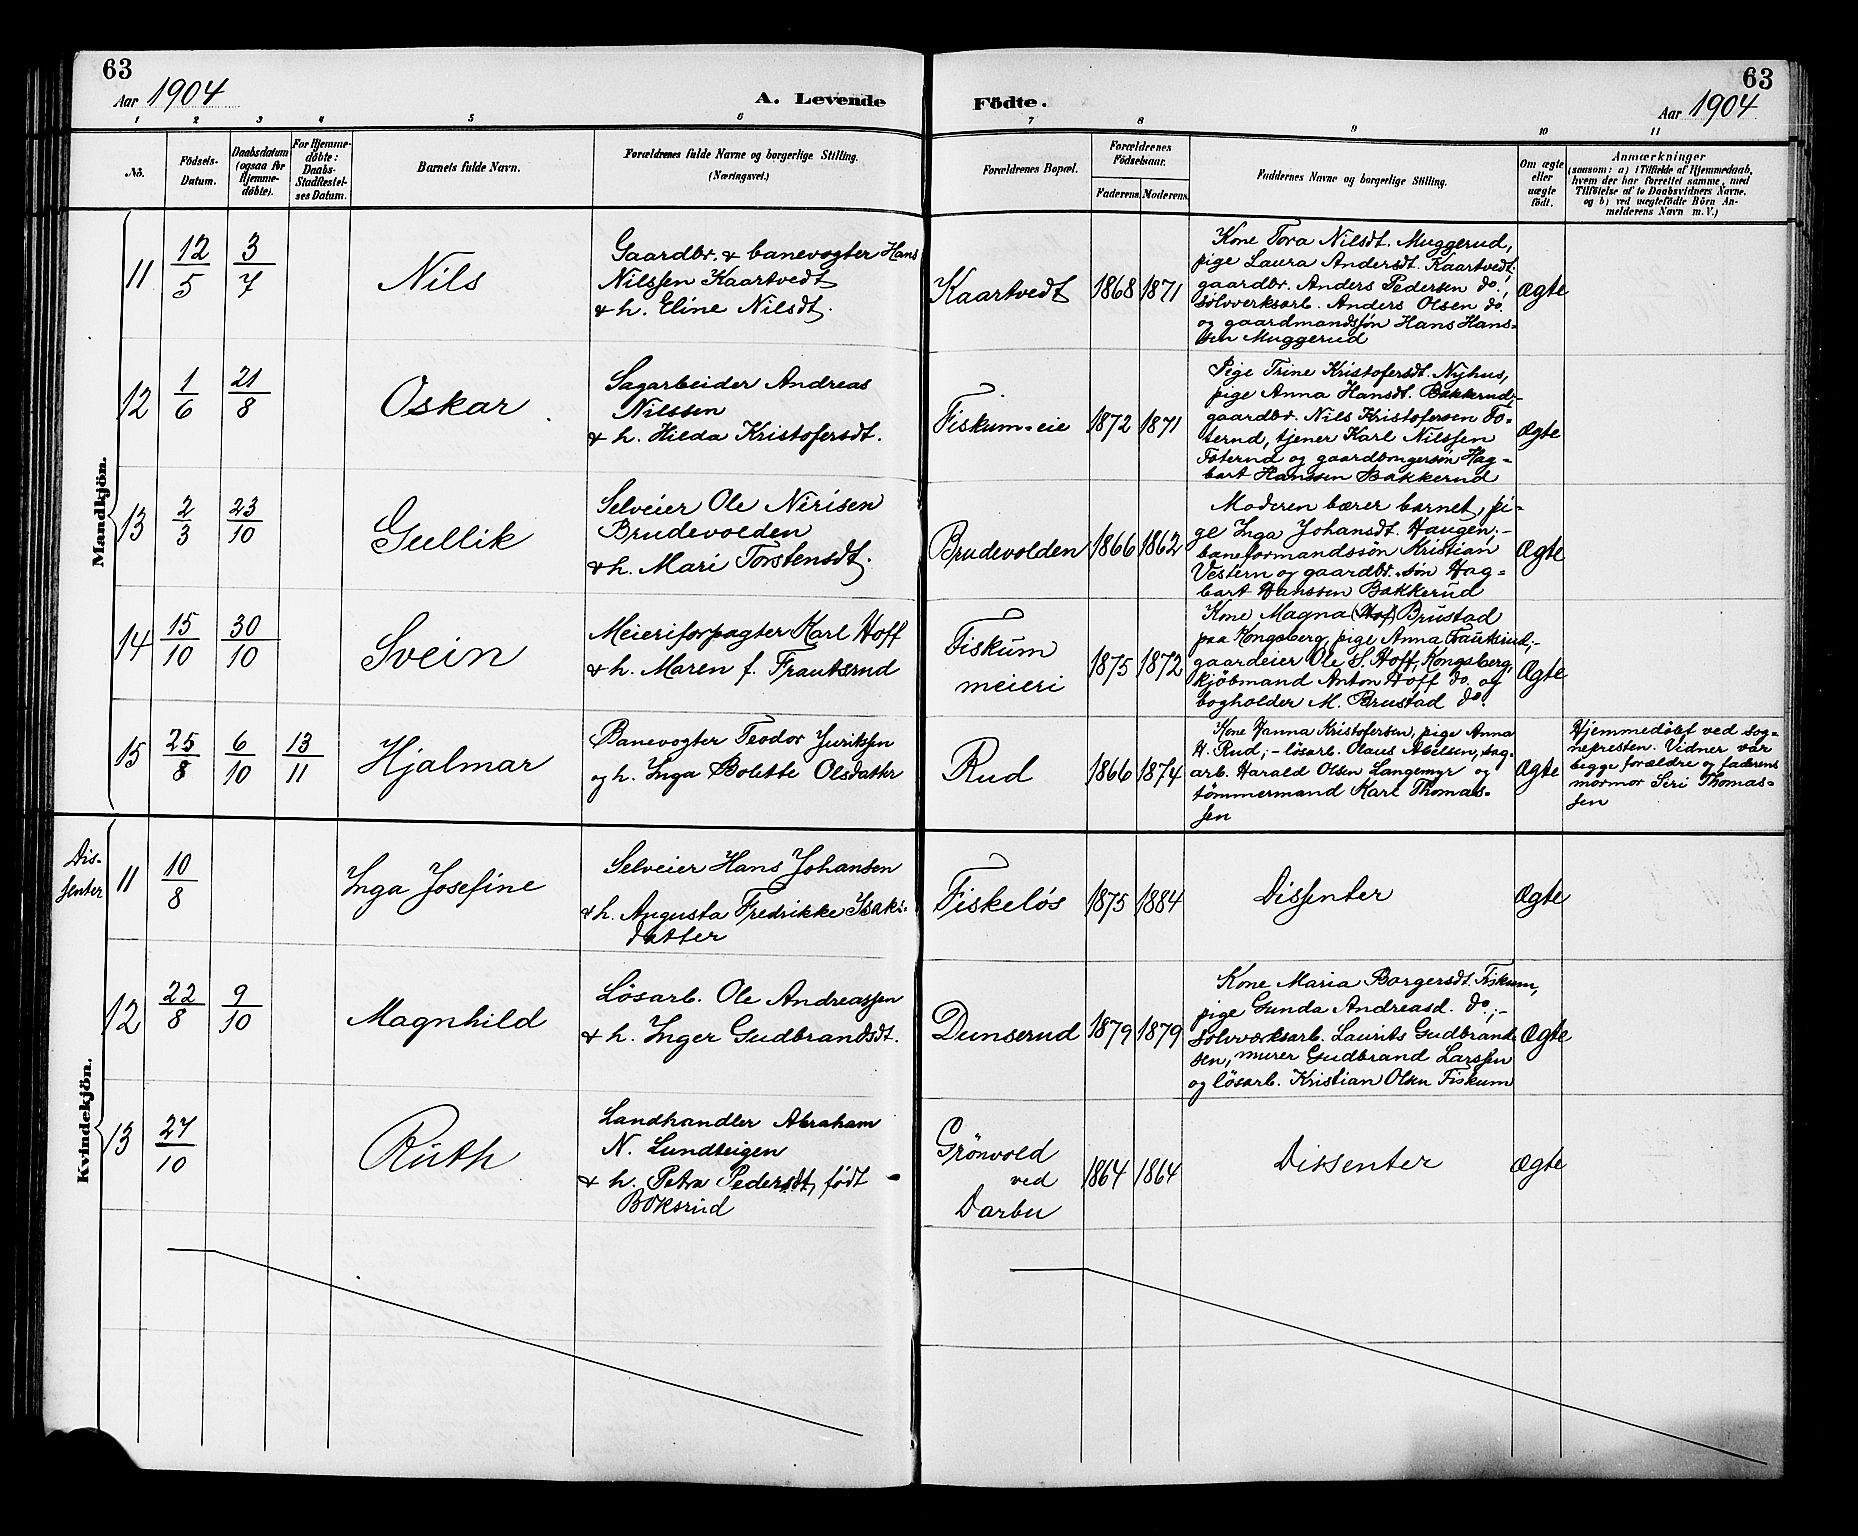 63
Aar 1904
A. Levende Födte.
63
Aar 1904
1 2 3 4 5 6 7 8 9 10 11
No.
Födsels-
Datum.
Daabsdatum
(ogsaa for
Hjemme-
döbte).
For Hjemme-
döbte:
Daabs-
Stadfæstel-
ses Datum.
Barnets fulde Navn.
Forældrenes fulde Navne og borgerlige Stilling.
(Næringsvei.)
Forældrenes Bopæl.
Forældrenes
Födselsaar.
Faderens. Moderens.
Faddernes Navne og borgerlige Stilling.
Om ægte
eller
uægte
født.
Anmærkninger
(saasom: a) i Tilfælde af Hjemmedaab,
hvem der har forrettet samme, med
Tilföielse af to Daabsvidners Navne.
og b) ved uægtefödte Börn An-
melderens Navn m. V.)
Mandkjön.
11
12/5
3/7
Nils
Gaardbr. & banevogter Hans
Nilssen Kaartvedt
& h. Eline Nilsdt.
Kaartvedt
1868 1871
Kone Tora Nilsdt. Muggerud,
pige Laura Andersdt. Kaartvedt;
gaardbr. Anders Pedersen do.,
sölvverksarb. Anders Olsen do.
og gaardmandssön Hans Hans-
sen Muggerud
Ægte
12
1/6
21/8
Oskar
Sagarbeider Andreas
Nilssen
& h. Hilda Kristofersdt.
Fiskum-eie
1872 1871
Pige Trine Kristofersdt. Nyhus,
pige Anna Hansdt. Bakkerud;-
gaardbr. Nils Kristofersen Fo-
terud, tjener Karl Nilssen
Foterud og gaardbrugersön Hag-
bart Hanssen Bakkerud
Ægte
13
2/3
23/10
Gullik
Selveier Ole Nirisen
Brudevolden
& h. Mari Torstensdt.
Brudevolden
1866 1862
Moderen bærer barnet, pi-
ge Inga Johansdt. Haugen;-
baneformandssön Kristian
Vestern og gaardbr.-sön Hag-
bart Hanssen Bakkerud
Ægte
14
15/10
30/10
Svein
Meieriforpagter Karl Hoff
& h. Maren f. Frautsrud
Fiskum
meieri
1875 1872
Kone Magna (Hof) Brustad
paa Kongsberg, pige Anna;-
gaardeier Ole S. Hoff, Kongsberg,
kjöbmand Anton Hoff do. og
bogholder M. Brustad do.
Ægte
15
25/8
6/10
13/11
Hjalmar
Banevogter Teodor Juriksen
og h. Inga Bolette Olsdatter
Rud
1866 1874
Kone Hanna Kristofersen, pige Anna
H. Rud;- lösarb. Olaus Abelsen, sag-
arb. Harald Olsen Langemyr og
tömmermand Karl Thomas-
sen
Ægte
Hjemmedöbt ved sog-
nepresten. Vidner var
begge forældre og faderens
mormor Siri Thomas-
sen
Dis-
senter
Kvindekjön.
11
10/8
Inga Josefine
Selveier Hans Johansen
& h. Augusta Fredrikke Isaks-
datter
Fiskelös
1875 1884
Dissenter
Ægte
12
22/8
9/10
Magnhild
Lösarb. Ole Andreassen
& h. Inger Gudbrandsdt.
Dunserud
1879 1879
Kone Maria Borgersdt. Fiskum,
pige Gunda Andreasd. do.;-
sölvværksarb. Laurits Gudbrand-
sen, murer Gudbrand Larssen
og lösarb. Kristian Olsen Fiskum
Ægte
13
27/10
Ruth
Landhandler Abraham
N. Lundteigen
& h. Petra Pedersdt, født
Boksrud
Grönvold
ved
Darbu
1864 1864
Dissenter
Ægte